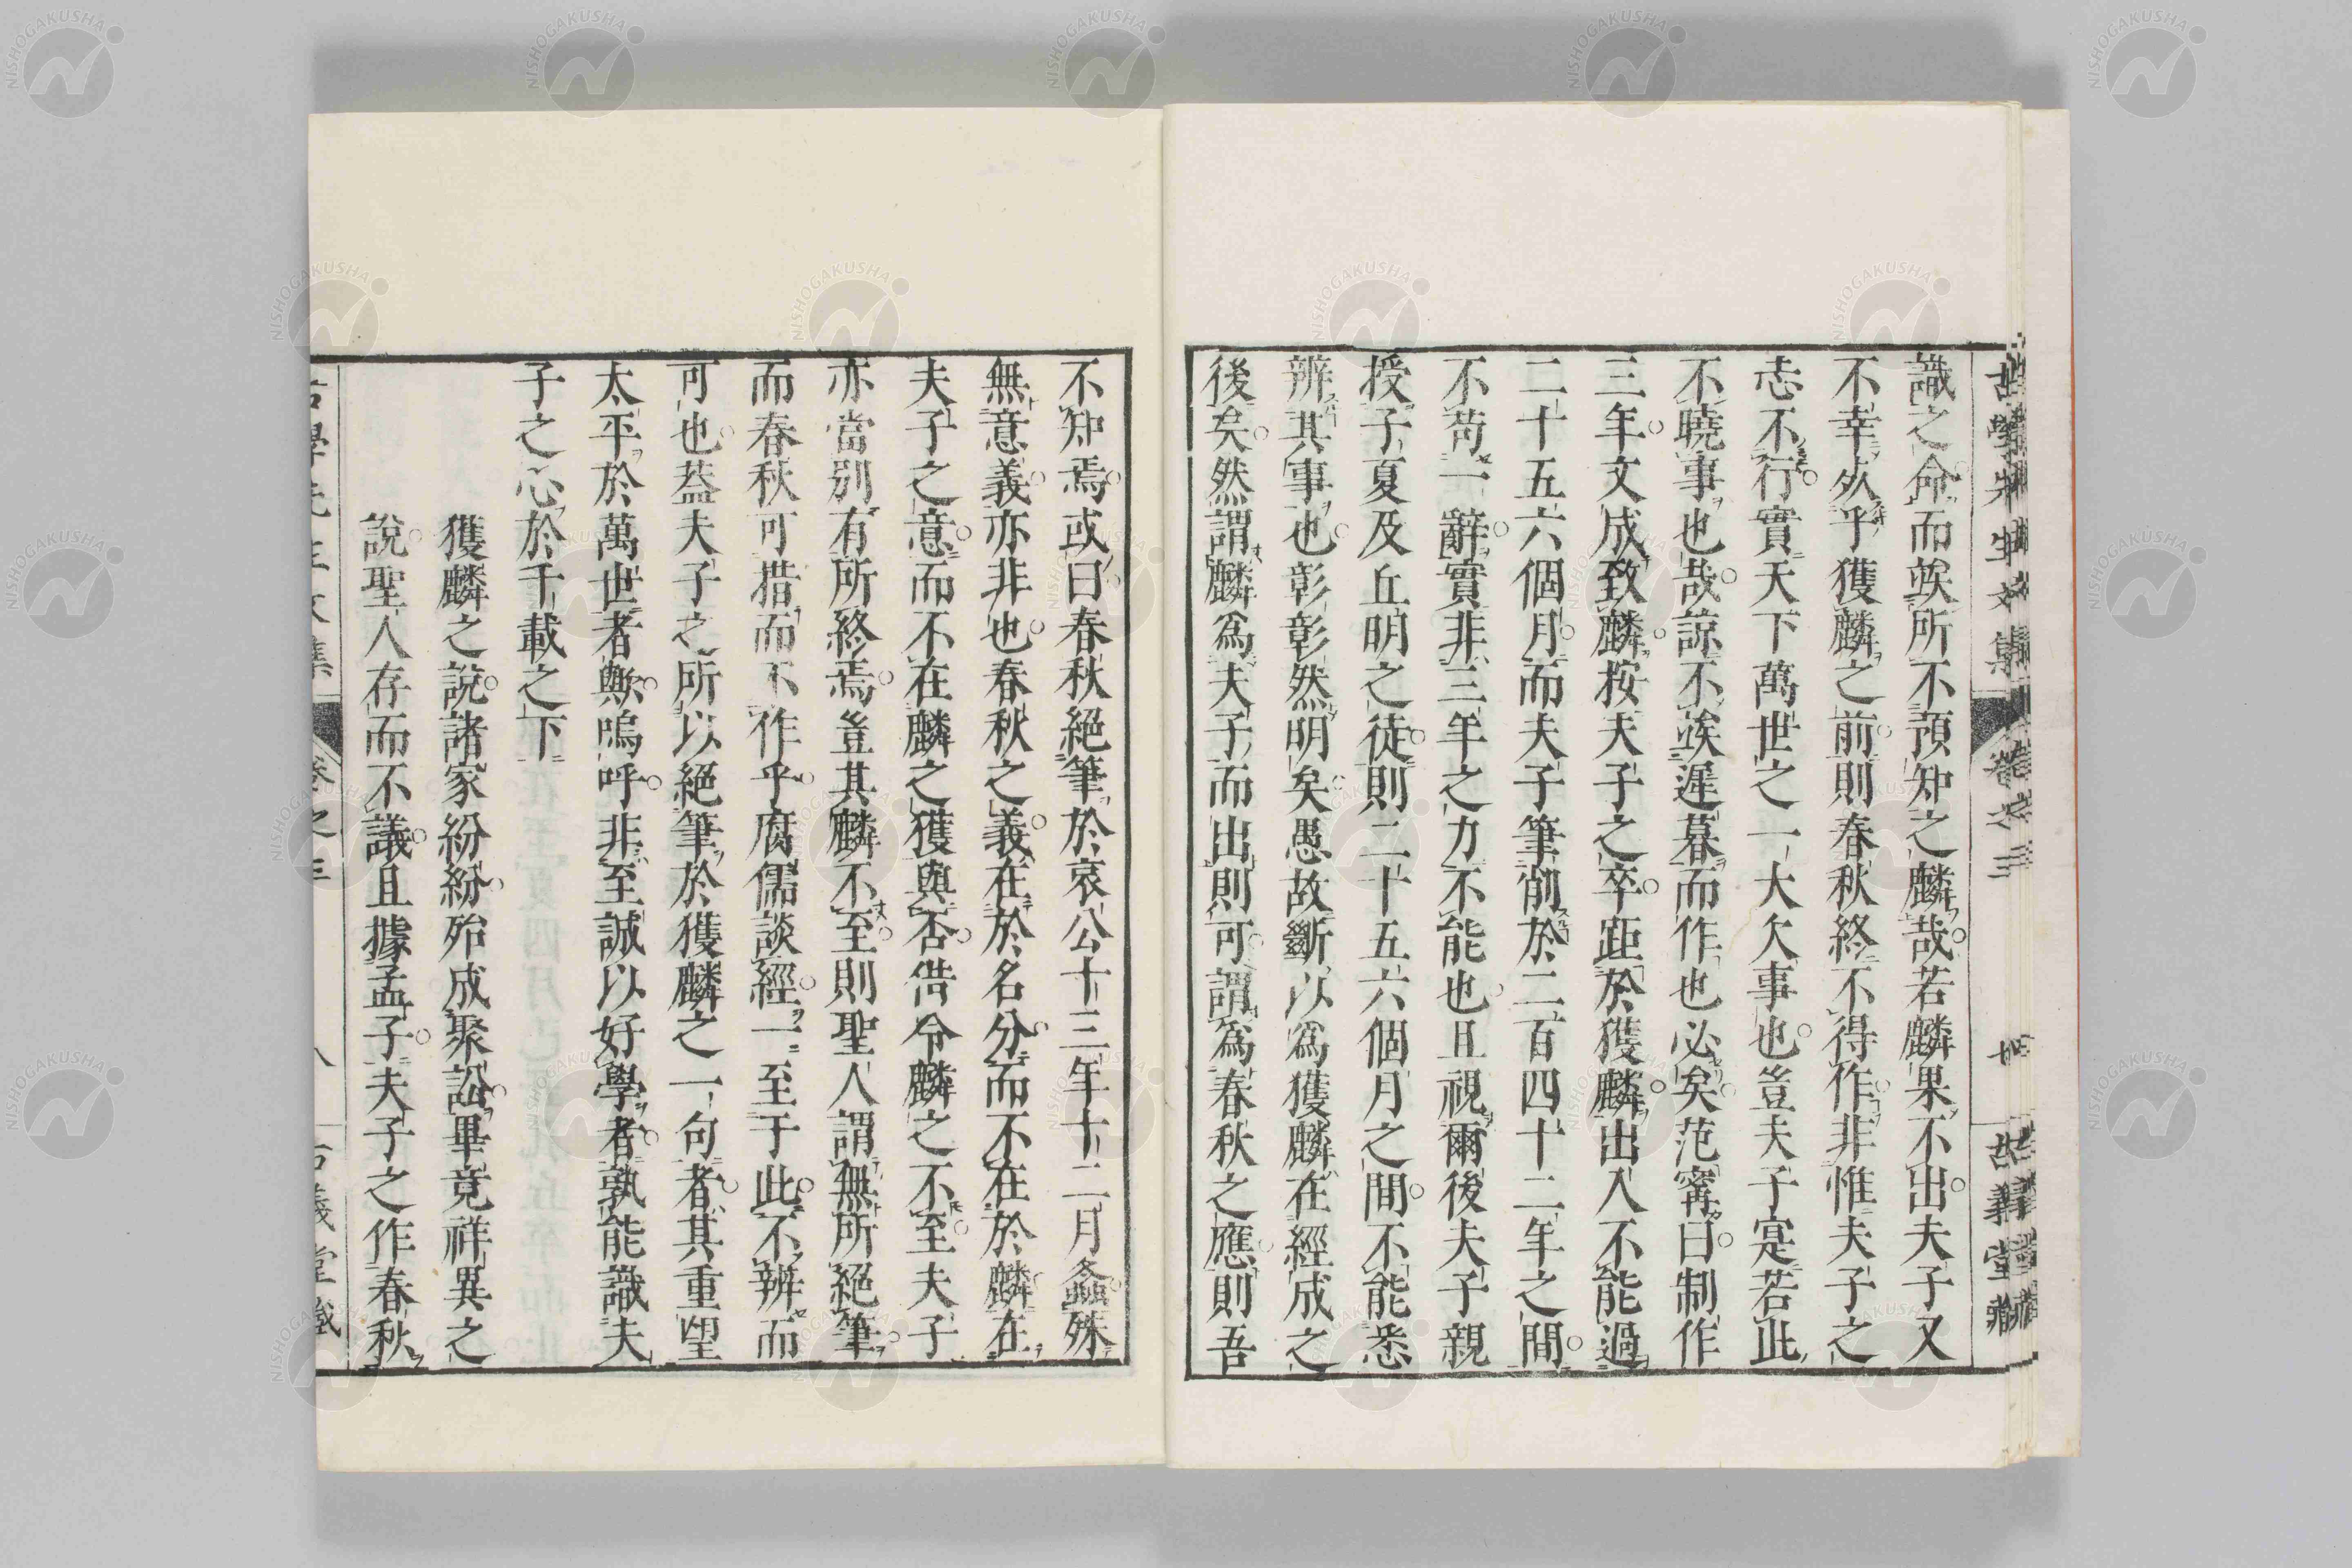 識之命而竢所不預知之麟哉若麟果不出夫子又
不幸歿乎獲麟之前則春秋終不得作非惟夫子之
志不行實天下萬世之一大欠事也豈夫子寔若此
不曉事也哉諒不竢遲暮而作也必矣范甯曰制作
三年文成致麟按夫子之卒距於獲麟出入不能過
二十五六個月而夫子筆削於二百四十二年之間
不苟一辭實非三年之力不能也且視爾後夫子親
授子夏及丘明之徒則二十五六個月之間不能悉
辨其事也彰彰然明矣愚故斷以爲獲麟在經成之
後矣然謂麟爲夫子而出則可謂爲春秋之應則吾
不知焉或曰春秋絕筆於哀公十三年十二月螽殊
無意義亦非也春秋之義在於名分而不在於麟在
夫子之意而不在麟之獲與否借令麟之不至夫子
亦當別有所終焉豈其麟不至則聖人謂無所絕筆
而春秋可措而不作乎腐儒談經一至于此不辨而
可也蓋夫子之所以絕筆於獲麟之一句者其重望
太平於萬世者歟嗚呼非至誠以好學者孰能識夫
子之心於千載之下
獲麟之說諸家紛紛殆成聚訟畢竟祥異之
說聖人存而不議且據孟子夫子之作春秋
古學先生文集 卷之三 古義堂藏
NISHOGAKUSHA